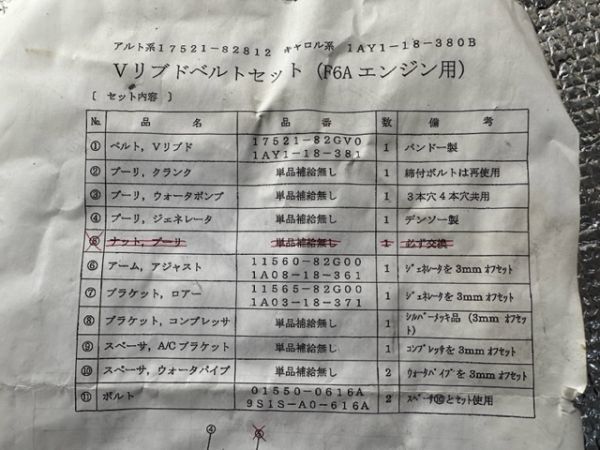 アルト系17521-82812 キャロル系 1AY1-18-380B
Vリブドベルトセット（F6Aエンジン用）
〔 セット内容 〕
No. 品名 品番 数 備考
① ベルト，Vリブド 17521-82GV0 1 バンドー製
1AY1-18-381
② プーリ，クランク 単品補給無し 1 締付ボルトは再使用
③ プーリ，ウォータポンプ 単品補給無し 1 3本穴4本穴共用
④ プーリ，ジェネレータ 単品補給無し 1 デンソー製
⑤ ナット，プーリ 単品補給無し 1 必ず交換
⑥ アーム，アジャスト 11560-82G00 1 ジェネレータを3mmオフセット
1A08-18-361
⑦ ブラケット，ロアー 11565-82G00 1 ジェネレータを3mmオフセット
1A03-18-371
⑧ ブラケット，コンプレッサ 単品補給無し 1 シルバーメッキ品（3mmオフセット）
⑨ スペーサ，A/Cブラケット 単品補給無し 1 コンプレッサを3mmオフセット
⑩ スペーサ，ウォータパイプ 単品補給無し 2 ウォータパイプを3mmオフセット
⑪ ボルト 01550-0616A 2 スペーサ⑩とセット使用
9S1S-A0-616A
④ ⑤